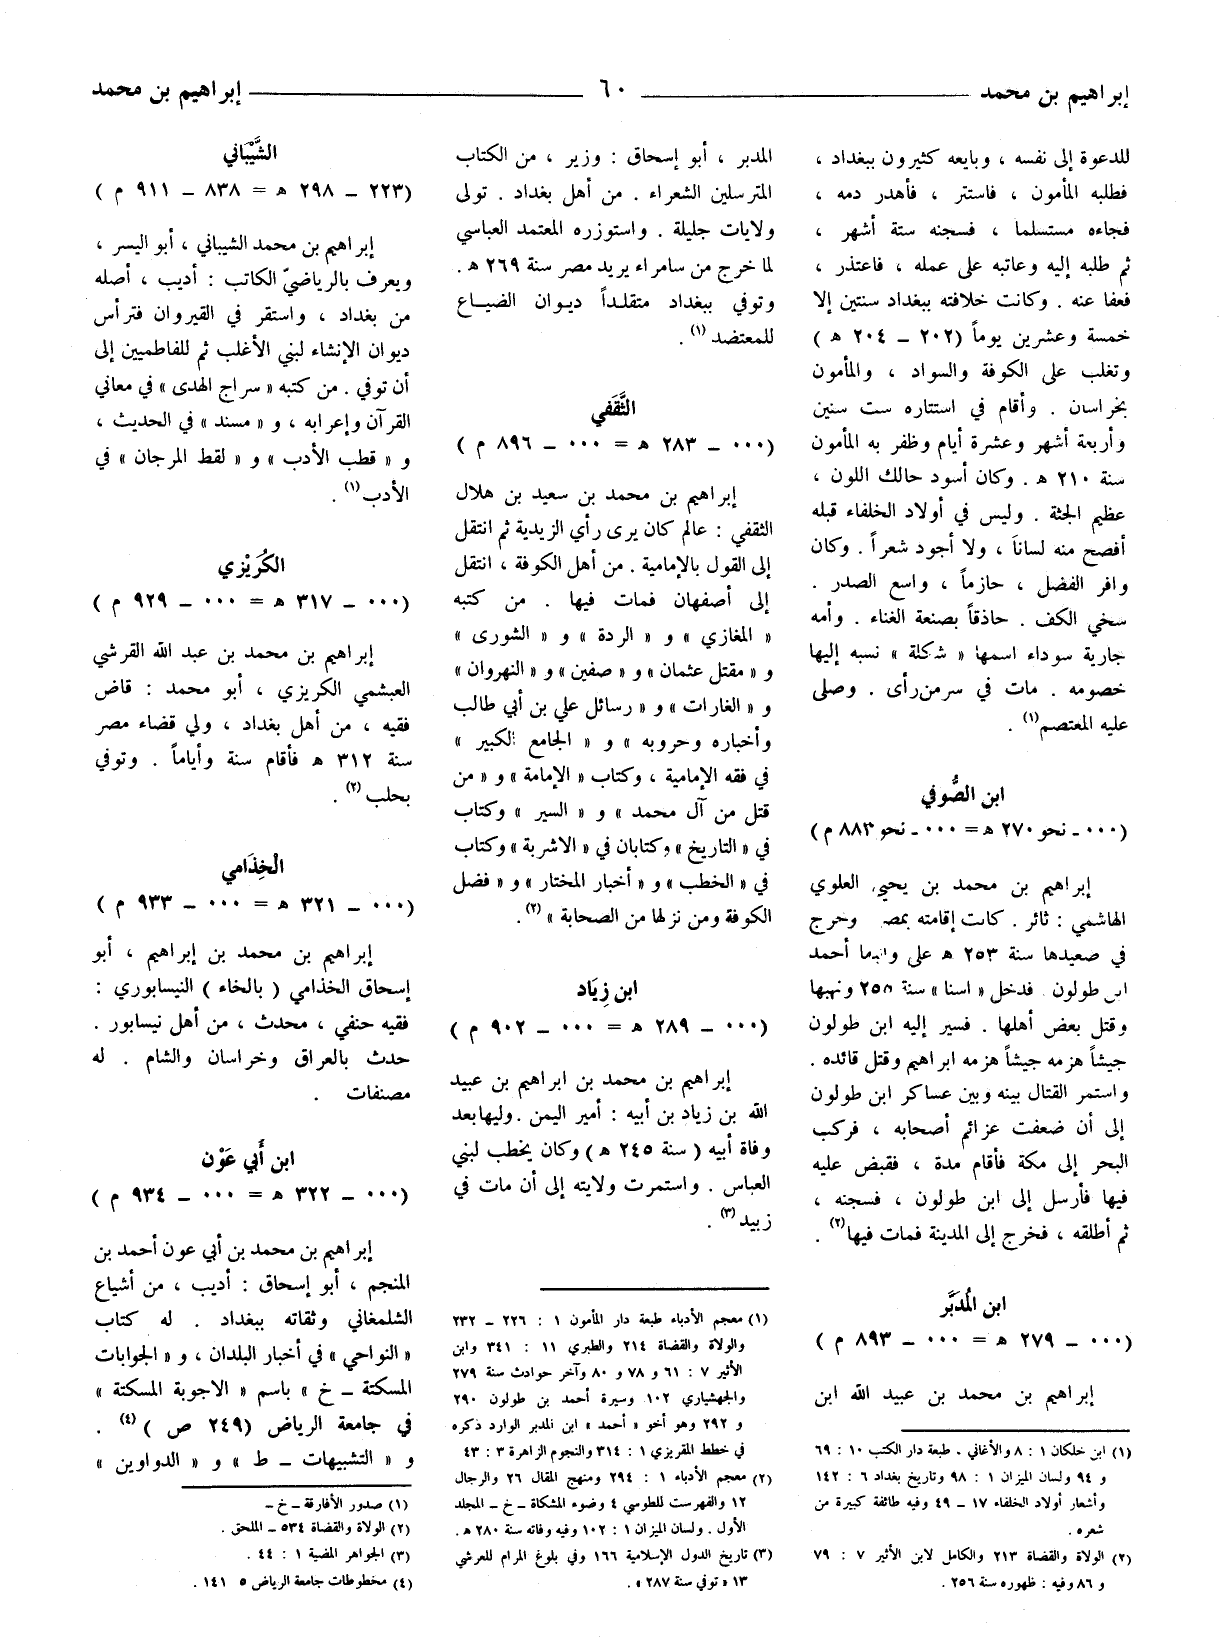 إبراهيم بن محمد
٦٠
إبراهيم بن محمد
للدعوة إلى نفسه ، وبايعه كثيرون ببغداد ،
فطلبه المأمون ، فاستتر ، فأهدر دمه ،
فجاءه مستسلما ، فسجنه ستة أشهر ،
ثم طلبه إليه وعاتبه على عمله ، فاعتذر ،
فعفا عنه . وكانت خلافته ببغداد سنتين إلا
خمسة وعشرين يوماً (٢٠٢ – ٢٠٤ ه )
وتغلب على الكوفة والسواد ، والمأمون
بخراسان . وأقام في استتاره ست سنين
وأربعة أشهر وعشرة أيام وظفر به المأمون
سنة ٢١٠ ه . وكان أسود حالك اللون ،
عظيم الجثة . وليس في أولاد الخلفاء قبله
أفصح منه لساناً ، ولا أجود شعراً . وكان
وافر الفضل ، حازماً ، واسع الصدر .
سخي الكف . حاذقاً بصنعة الغناء . وأمه
جارية سوداء اسمها « شكلة » نسبه إليها
خصومه . مات في سرمن رأى . وصلى
عليه المعتصم (١) .
ابن الصُّوفي
(٠٠٠ - نحو ٢٧٠ ه = ٠٠٠ - نحو ٨٨٣ م )
إبراهيم بن محمد بن يحيى العلوي
الهاشمي : ثائر . كانت إقامته بمصر وخرج
في صعيدها سنة ٢٥٣ ه على واليها أحمد
ابن طولون . فدخل « اسنا » سنة ٢٥٥ ونهبها
وقتل بعض أهلها . فسير إليه ابن طولون
جيشاً هزمه جيشاً هزمه ابراهيم وقتل قائده .
واستمر القتال بينه وبين عساكر ابن طولون
إلى أن ضعفت عزائم أصحابه ، فركب
البحر إلى مكة فأقام مدة ، فقبض عليه
فيها فأرسل إلى ابن طولون ، فسجنه ،
ثم أطلقه ، فخرج إلى المدينة فمات فيها (٢) .
ابن المُدَبَّر
(٠٠٠ – ٢٧٩ ه = ٠٠٠ – ٨٩٣ م )
إبراهيم بن محمد بن عبيد الله ابن
(١) ابن خلكان ١ : ٨ والأغاني . طبعة دار الكتب ١٠ : ٦٩
و ٩٤ ولسان الميزان ١ : ٩٨ وتاريخ بغداد ٦ : ١٤٢
وأشعار أولاد الخلفاء ١٧ – ٤٩ وفيه طائفة كبيرة من
شعره .
(٢) الولاة والقضاة ٢١٣ والكامل لابن الأثير ٧ : ٧٩
و ٨٦ وفيه : ظهوره سنة ٢٥٦ .
المدبر ، أبو إسحاق : وزير ، من الكتاب
المترسلين الشعراء . من أهل بغداد . تولى
ولايات جليلة . واستوزره المعتمد العباسي
لما خرج من سامراء يريد مصر سنة ٢٦٩ ه .
وتوفي ببغداد متقلداً ديوان الضياع
للمعتضد (١) .
الثَّقَفي
(٠٠٠ – ٢٨٣ ه = ٠٠٠ – ٨٩٦ م )
إبراهيم بن محمد بن سعيد بن هلال
الثقفي : عالم كان يرى رأي الزيدية ثم انتقل
إلى القول بالإمامية . من أهل الكوفة ، انتقل
إلى أصفهان فمات فيها . من كتبه
« المغازي » و « الردة » و « الشورى »
و « مقتل عثمان » و « صفين » و « النهروان »
و « الغارات » و « رسائل علي بن أبي طالب
وأخباره وحروبه » و « الجامع الكبير »
في فقه الإمامية ، وكتاب « الإمامة » و « من
قتل من آل محمد » و « السير » وكتاب
في « التاريخ » وكتابان في « الاشربة » وكتاب
في « الخطب » و « أخبار المختار » و « فضل
الكوفة ومن نزلها من الصحابة » (٢) .
ابن زِيَاد
(٠٠٠ – ٢٨٩ ه = ٠٠٠ – ٩٠٢ م )
إبراهيم بن محمد بن ابراهيم بن عبيد
الله بن زياد بن أبيه : أمير اليمن . وليها بعد
وفاة أبيه ( سنة ٢٤٥ ه ) وكان يخطب لبني
العباس . واستمرت ولايته إلى أن مات في
زبيد (٣) .
(١) معجم الأدباء طبعة دار المأمون ١ : ٢٢٦ – ٢٣٢
والولاة والقضاة ٢١٤ والطبري ١١ : ٣٤١ وابن
الأثير ٧ : ٦١ و ٧٨ و ٨٠ وآخر حوادث سنة ٢٧٩
والجهشياري ١٠٢ وسيرة أحمد بن طولون ٢٩٠
و ٢٩٢ وهو أخو « أحمد » ابن المدبر الوارد ذكره
في خطط المقريزي ١ : ٣١٤ والنجوم الزاهرة ٣ : ٤٣
(٢) معجم الأدباء ١ : ٢٩٤ ومنهج المقال ٢٦ والرجال
١٢ والفهرست للطوسي ٤ وضوء المشكاة – خ – المجلد
الأول . ولسان الميزان ١ : ١٠٢ وفيه وفاته سنة ٢٨٠ ه .
(٣) تاريخ الدول الإسلامية ١٦٦ وفي بلوغ المرام للعرشي
١٣ « توفي سنة ٢٨٧ » .
الشَّيْبَاني
(٢٢٣ – ٢٩٨ ه = ٨٣٨ – ٩١١ م )
إبراهيم بن محمد الشيباني ، أبو اليسر ،
ويعرف بالرياضيّ الكاتب : أديب ، أصله
من بغداد ، واستقر في القيروان فترأس
ديوان الإنشاء لبني الأغلب ثم للفاطميين إلى
أن توفي . من كتبه « سراج الهدى » في معاني
القرآن وإعرابه ، و « مسند » في الحديث ،
و « قطب الأدب » و « لقط المرجان » في
الأدب (١) .
الكُرَيْزي
(٠٠٠ – ٣١٧ ه = ٠٠٠ – ٩٢٩ م )
إبراهيم بن محمد بن عبد الله القرشي
العبشمي الكريزي ، أبو محمد : قاض
فقيه ، من أهل بغداد ، ولي قضاء مصر
سنة ٣١٢ ه فأقام سنة وأياماً . وتوفي
بحلب (٢) .
الْخِذَامي
(٠٠٠ – ٣٢١ ه = ٠٠٠ – ٩٣٣ م )
إبراهيم بن محمد بن إبراهيم ، أبو
إسحاق الخذامي ( بالخاء ) النيسابوري :
فقيه حنفي ، محدث ، من أهل نيسابور .
حدث بالعراق وخراسان والشام . له
مصنفات .
ابن أَبي عَوْن
(٠٠٠ – ٣٢٢ ه = ٠٠٠ – ٩٣٤ م )
إبراهيم بن محمد بن أبي عون أحمد بن
المنجم ، أبو إسحاق : أديب ، من أشياع
الشلمغاني وثقاته ببغداد . له كتاب
« النواحي » في أخبار البلدان ، و « الجوابات
المسكتة – خ » باسم « الاجوبة المسكتة »
في جامعة الرياض (٢٤٩ ص ) (٤) .
و « التشبيهات – ط » و « الدواوين »
(١) صدور الأفارقة – خ –
(٢) الولاة والقضاة ٥٣٤ – الملحق .
(٣) الجواهر المضية ١ : ٤٤ .
(٤) مخطوطات جامعة الرياض ٥ ١٤١ .